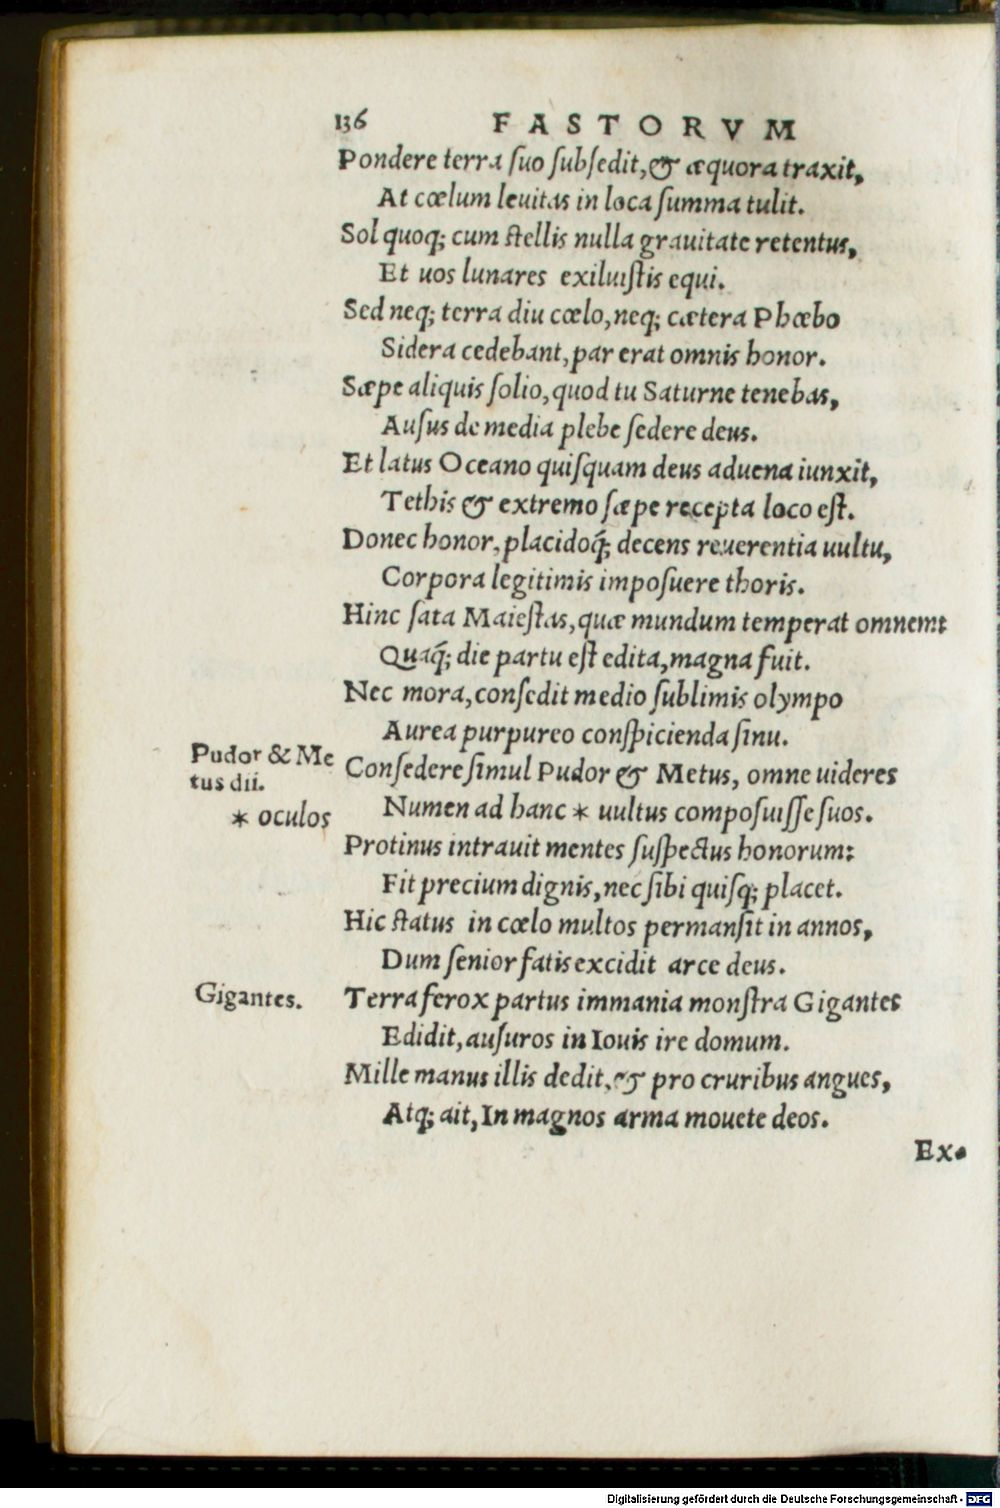 136 FASTORVM
Pondere terra ſuo ſubſedit, & æquora traxit,
At cœlum leuitas in loca ſumma tulit.
Sol quoq; cum ſtellis nulla grauitate retentus,
Et uos lunares exiluiſtis equi.
Sed neq; terra diu cœlo, neq; cætera Phœbo
Sidera cedebant, par erat omnis honor.
Sæpe aliquis ſolio, quod tu Saturne tenebas,
Auſus de media plebe ſedere deus.
Et latus Oceano quiſquam deus aduena iunxit,
Tethis & extremo ſæpe recepta loco eſt.
Donec honor, placidoq́; decens reuerentia uultu,
Corpora legitimis impoſuere thoris.
Hinc ſata Maieſtas, quæ mundum temperat omnem:
Quaq́; die partu eſt edita, magna fuit.
Nec mora, conſedit medio ſublimis olympo
Aurea purpureo conſpicienda ſinu.
Pudor & Me
tus dii.
Conſedere ſimul Pudor & Metus, omne uideres
* oculos
Numen ad hanc * uultus compoſuiſſe ſuos.
Protinus intrauit mentes ſuſpectus honorum:
Fit precium dignis, nec ſibi quiſq; placet.
Hic ſtatus in cœlo multos permanſit in annos,
Dum ſenior fatis excidit arce deus.
Gigantes.
Terra ferox partus immania monſtra Gigantes
Edidit, auſuros in Iouis ire domum.
Mille manus illis dedit, & pro cruribus angues,
Atq; ait, In magnos arma mouete deos.
Ex-
Digitalisierung gefördert durch die Deutsche Forschungsgemeinschaft - DFG